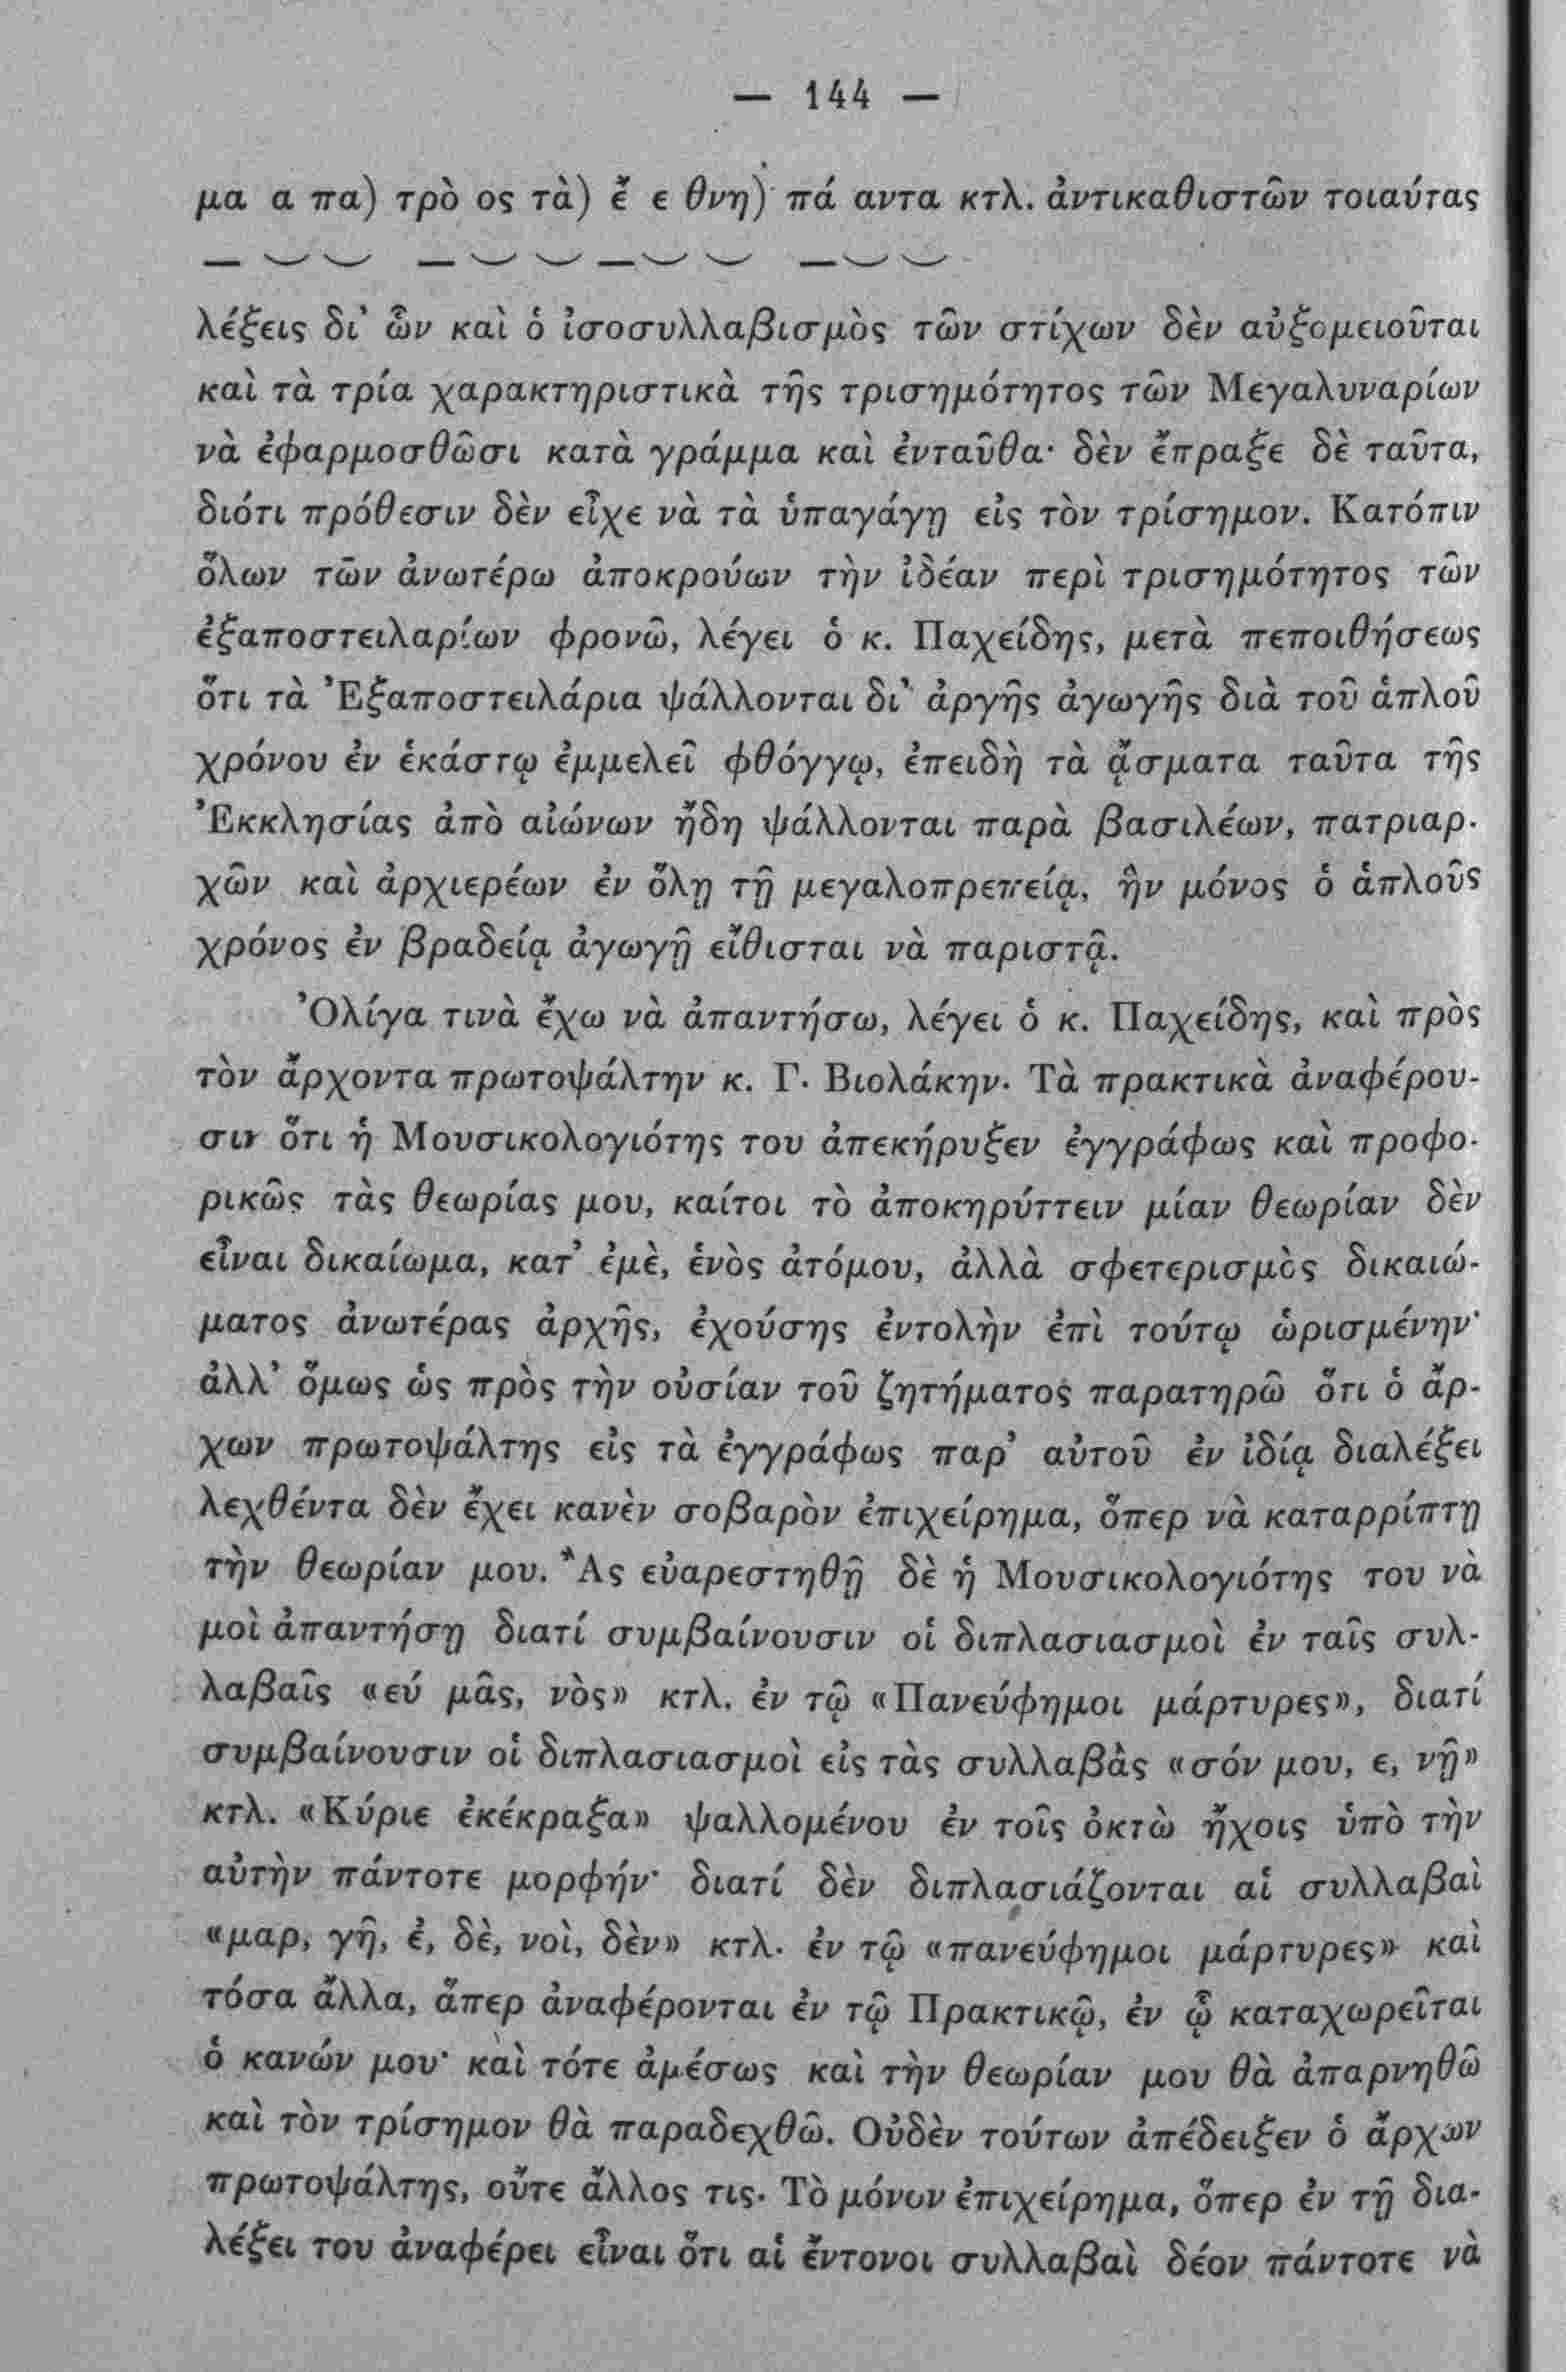 — 144 —
μα α πα) τρὸ ος τὰ) ἔ ε θνη) πά αντα κτλ. ἀντικαθιστῶν τοιαύτας
— ⏑ ⏑ — ⏑ ⏑ — ⏑ ⏑ — ⏑ ⏑
λέξεις δι’ ὧν καὶ ὁ ἰσοσυλλαβισμὸς τῶν στίχων δὲν αὐξομειοῦται
καὶ τὰ τρία χαρακτηριστικὰ τῆς τρισημότητος τῶν Μεγαλυναρίων
νὰ ἐφαρμοσθῶσι κατὰ γράμμα καὶ ἐνταῦθα· δὲν ἔπραξε δὲ ταῦτα,
διότι πρόθεσιν δὲν εἶχε νὰ τὰ ὑπαγάγῃ εἰς τὸν τρίσημον. Κατόπιν
ὅλων τῶν ἀνωτέρω ἀποκρούων τὴν ἰδέαν περὶ τρισημότητος τῶν
ἐξαποστειλαρίων φρονῶ, λέγει ὁ κ. Παχείδης, μετὰ πεποιθήσεως
ὅτι τὰ Ἐξαποστειλάρια ψάλλονται δι’ ἀργῆς ἀγωγῆς διὰ τοῦ ἁπλοῦ
χρόνου ἐν ἑκάστῳ ἐμμελεῖ φθόγγῳ, ἐπειδὴ τὰ ᾄσματα ταῦτα τῆς
Ἐκκλησίας ἀπὸ αἰώνων ἤδη ψάλλονται παρὰ βασιλέων, πατριαρ-
χῶν καὶ ἀρχιερέων ἐν ὅλῃ τῇ μεγαλοπρεπείᾳ, ἣν μόνος ὁ ἁπλοῦς
χρόνος ἐν βραδείᾳ ἀγωγῇ εἴθισται νὰ παριστᾷ.
Ὀλίγα τινὰ ἔχω νὰ ἀπαντήσω, λέγει ὁ κ. Παχείδης, καὶ πρὸς
τὸν ἄρχοντα πρωτοψάλτην κ. Γ. Βιολάκην. Τὰ πρακτικὰ ἀναφέρου-
σιν ὅτι ἡ Μουσικολογιότης του ἀπεκήρυξεν ἐγγράφως καὶ προφο-
ρικῶς τὰς θεωρίας μου, καίτοι τὸ ἀποκηρύττειν μίαν θεωρίαν δὲν
εἶναι δικαίωμα, κατ’ ἐμὲ, ἑνὸς ἀτόμου, ἀλλὰ σφετερισμὸς δικαιώ-
ματος ἀνωτέρας ἀρχῆς, ἐχούσης ἐντολὴν ἐπὶ τούτῳ ὡρισμένην·
ἀλλ’ ὅμως ὡς πρὸς τὴν οὐσίαν τοῦ ζητήματος παρατηρῶ ὅτι ὁ ἄρ-
χων πρωτοψάλτης εἰς τὰ ἐγγράφως παρ’ αὐτοῦ ἐν ἰδίᾳ διαλέξει
λεχθέντα δὲν ἔχει κανὲν σοβαρὸν ἐπιχείρημα, ὅπερ νὰ καταρρίπτῃ
τὴν θεωρίαν μου. Ἂς εὐαρεστηθῇ δὲ ἡ Μουσικολογιότης του νὰ
μοὶ ἀπαντήσῃ διατί συμβαίνουσιν οἱ διπλασιασμοὶ ἐν ταῖς συλ-
λαβαῖς «εύ μᾶς, νὸς» κτλ. ἐν τῷ «Πανεύφημοι μάρτυρες», διατί
συμβαίνουσιν οἱ διπλασιασμοὶ εἰς τὰς συλλαβὰς «σόν μου, ε, νῇ»
κτλ. «Κύριε ἐκέκραξα» ψαλλομένου ἐν τοῖς ὀκτὼ ἤχοις ὑπὸ τὴν
αὐτὴν πάντοτε μορφήν· διατί δὲν διπλασιάζονται αἱ συλλαβαὶ
«μαρ, γῆ, ἐ, δὲ, νοὶ, δὲν» κτλ. ἐν τῷ «πανεύφημοι μάρτυρες» καὶ
τόσα ἄλλα, ἅπερ ἀναφέρονται ἐν τῷ Πρακτικῷ, ἐν ᾧ καταχωρεῖται
ὁ κανών μου· καὶ τότε ἀμέσως καὶ τὴν θεωρίαν μου θὰ ἀπαρνηθῶ
καὶ τὸν τρίσημον θὰ παραδεχθῶ. Οὐδὲν τούτων ἀπέδειξεν ὁ ἄρχων
πρωτοψάλτης, οὔτε ἄλλος τις. Τὸ μόνον ἐπιχείρημα, ὅπερ ἐν τῇ δια-
λέξει του ἀναφέρει εἶναι ὅτι αἱ ἔντονοι συλλαβαὶ δέον πάντοτε νὰ